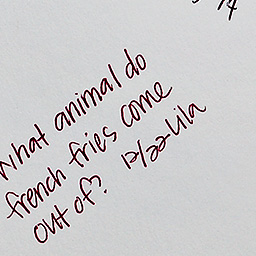 14
What animal do
french fries come
out of? 12/22-Lila